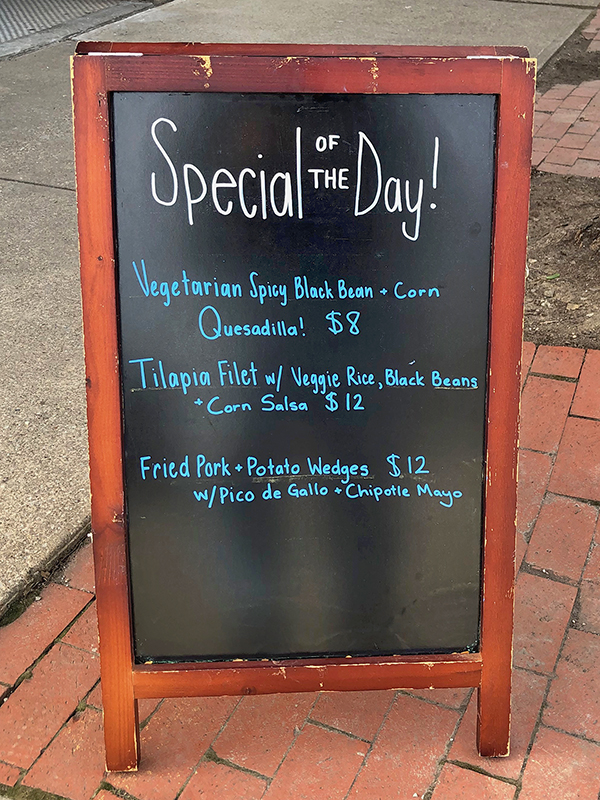 Special OF THE Day!
Vegetarian Spicy Black Bean + Corn
Quesadilla! $8
Tilapia Filet w/ Veggie Rice, Black Beans
+ Corn Salsa $12
Fried Pork + Potato Wedges $12
w/ Pico de Gallo + Chipotle Mayo